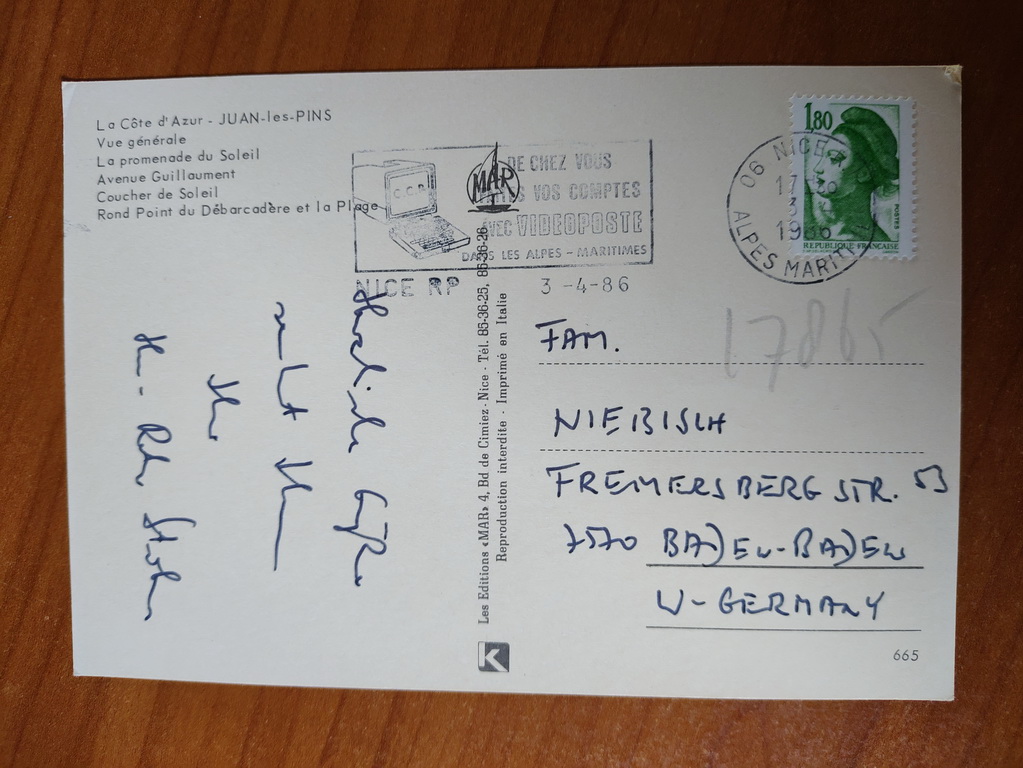 La Côte d'Azur - JUAN-les-PINS
Vue générale
La promenade du Soleil
Avenue Guillaument
Coucher de Soleil
Rond Point du Débarcadère et la Plage
MAR
DE CHEZ VOUS
VOS COMPTES
AVEC VIDEOPOSTE
DANS LES ALPES - MARITIMES
NICE RP 3 -4-86
1,80
POSTES
REPUBLIQUE FRANÇAISE
06 NICE
1986
ALPES MARIT
17865
Herzliche Grüße
sendet Ihnen
Ihr
Les Editions «MAR» 4, Bd de Cimiez - Nice - Tél. 85-36-25, 85-36-26
Reproduction interdite - Imprimé en Italie
FAM.
NIEBISCH
FREMERSBERGSTR. 53
7570 BADEN-BADEN
W-GERMANY
K
665